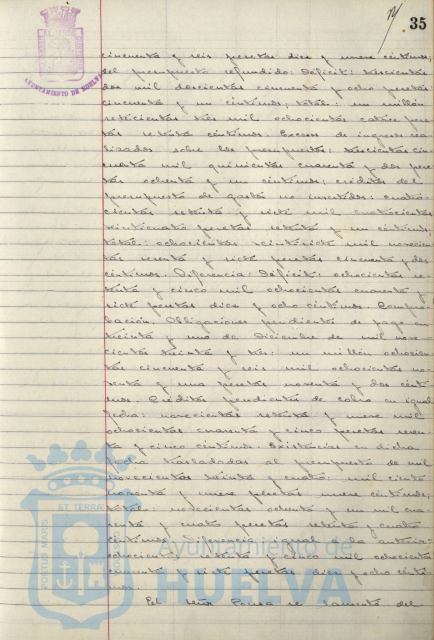 35
cincuenta y seis pesetas diez y nueve céntimos;
del presupuesto refundido: Déficit: trescientas
dos mil doscientas cincuenta y ocho pesetas
cincuenta y un céntimos; total: un millón
setecientas tres mil ochocientas catorce pese-
tas setenta céntimos. Exceso de ingresos rea-
lizados sobre los presupuestos: trescientas cin-
cuenta mil quinientas cuarenta y dos pese-
tas ochenta y un céntimos; créditos del
presupuesto de gastos no invertidos: cuatro-
cientas setenta y siete mil cuatrocientas
veinticuatro pesetas setenta y un céntimos;
total: ochocientas veintisiete mil novecien-
tas sesenta y siete pesetas cincuenta y dos
céntimos. Diferencia: Déficit: ochocientas se-
tenta y cinco mil ochocientas cuarenta y
siete pesetas diez y ocho céntimos. Compro-
bación. Obligaciones pendientes de pago en
treinta y uno de Diciembre de mil nove-
cientos treinta y tres: un millón ochocien-
tas cincuenta y seis mil ochocientas no-
venta y una pesetas noventa y dos cénti-
mos. Créditos pendientes de cobro en igual
fecha: novecientas setenta y nueve mil
ochocientas cuarenta y cinco pesetas seten-
ta y cinco céntimos. Existencias en dicha
fecha trasladadas al presupuesto de mil
novecientos treinta y cuatro: mil ciento
noventa y nueve pesetas nueve céntimos;
total: novecientas ochenta y un mil cua-
renta y cuatro pesetas setenta y cuatro
céntimos. Diferencia igual a la anterior:
ochocientas setenta y cinco mil ochocientas
cuarenta y siete pesetas diez y ocho cénti-
mos.
El señor Ponce se lamenta del
AYUNTAMIENTO DE HUELVA
PORTUS MARIS
ET TERRAE
Ayuntamiento de
HUELVA